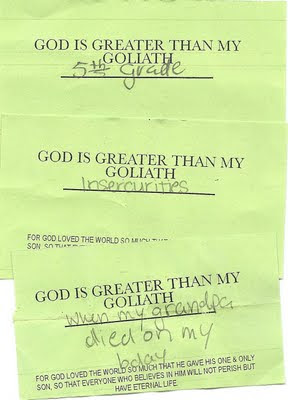 GOD IS GREATER THAN MY
GOLIATH
5th Grade
GOD IS GREATER THAN MY
GOLIATH
Insercurities
FOR GOD LOVED THE WORLD SO MUCH THAT
SON, SO THAT
GOD IS GREATER THAN MY
GOLIATH
when my grandpa
died on my
bday
FOR GOD LOVED THE WORLD SO MUCH THAT HE GAVE HIS ONE & ONLY
SON, SO THAT EVERYONE WHO BELIEVES IN HIM WILL NOT PERISH BUT
HAVE ETERNAL LIFE